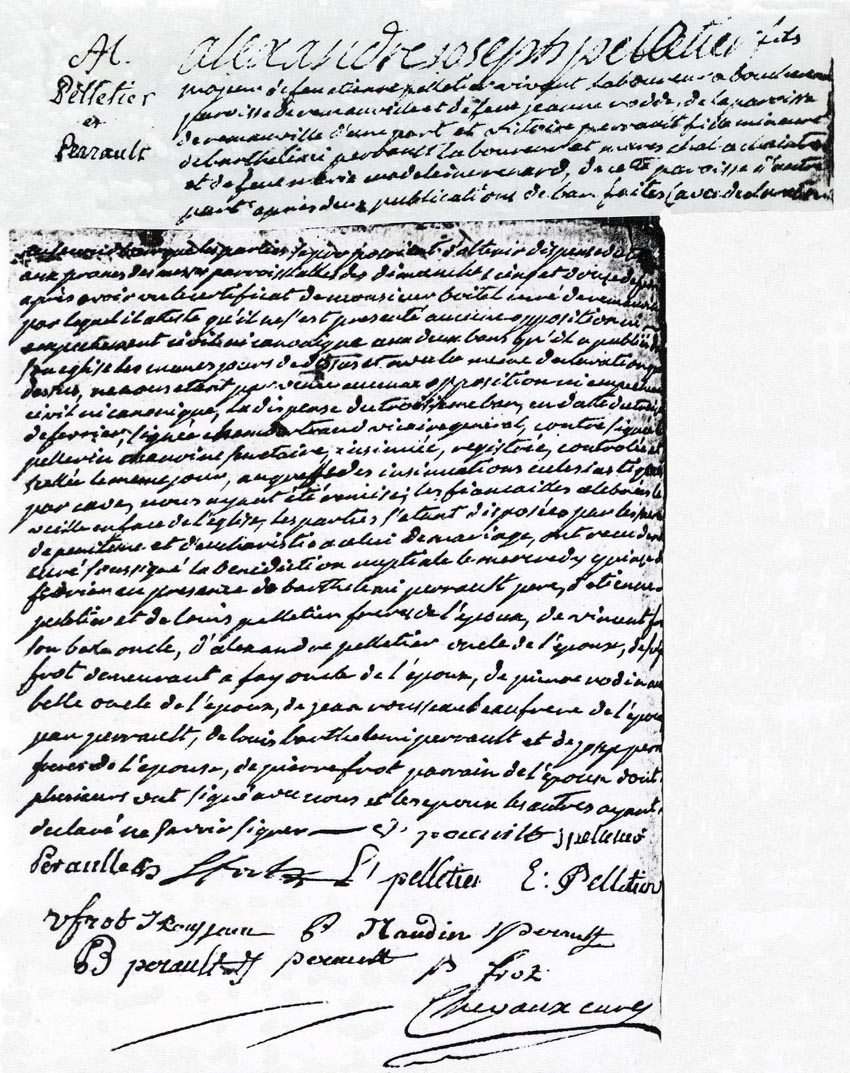 M.
Pelletier
et
Perrault
alexandre joseph pelletier fils
majeur de feu etienne pelletier vivant laboureur a
paroisse de remauville et de feue jeanne rodde, de la paroisse
de remauville d'une part et victoire perrault fille mineure
de barthelemi perrault laboureur et marechal a
et de feue marie madeleine renard, de cette paroisse d'autre
part, apres deux publications de ban faites avec declaration
que les parties se proposoient d'obtenir dispense du
aux prones des messes paroissialles des dimanches cinq et douze de
après avoir vu le certificat de monsieur boitel curé de remauville
par lequel il ateste qu'il ne s'est presenté aucune opposition ni
empechement civil ni canonique aux deux bans qu'il a publiés
son eglise les memes jours de et avec la meme declaration que
dessus, ne nous etant parvenu aucune opposition ni empechement
civil ni canonique, la dispense du troisieme ban, en date du
de fevrier, signée vicaire general, contresignée
pellerin chanoine secretaire, insinuée, registrée, controlée et
scellée le meme jour, au greffe des insinuations eclesiastiques
par nous ayant été remise; les fiancailles celebrées la
veille en face de l'eglise, les parties s'etant disposées par les
de penitence et d'eucharistie a celui de mariage, ont recu de
curé soussigné la benediction nuptiale le mercredy quinze
fevrier en presence de barthelemi perrault pere, d'etienne
pelletier et de louis pelletier freres de l'epoux, de vincent frot
son bel oncle, d'alexandre pelletier oncle de l'epoux, de
frot demeurant a fay oncle de l'epoux, de pierre
belle oncle de l'epoux, de jean rousseau beaufrere de l'epoux
jean perrault, de louis barthelemi perrault et de josep perrault
freres de l'epouse, de pierre frot parrain de l'epoux dont
plusieurs ont signé avec nous et les epoux les autres ayant
declaré ne savoir signer V perrault J pelletier
Perault L B frot L pelletier E: Pelletier
V frot J Rousseau P Naudin J perrault
B perault J perault P frot
Chevaux curé